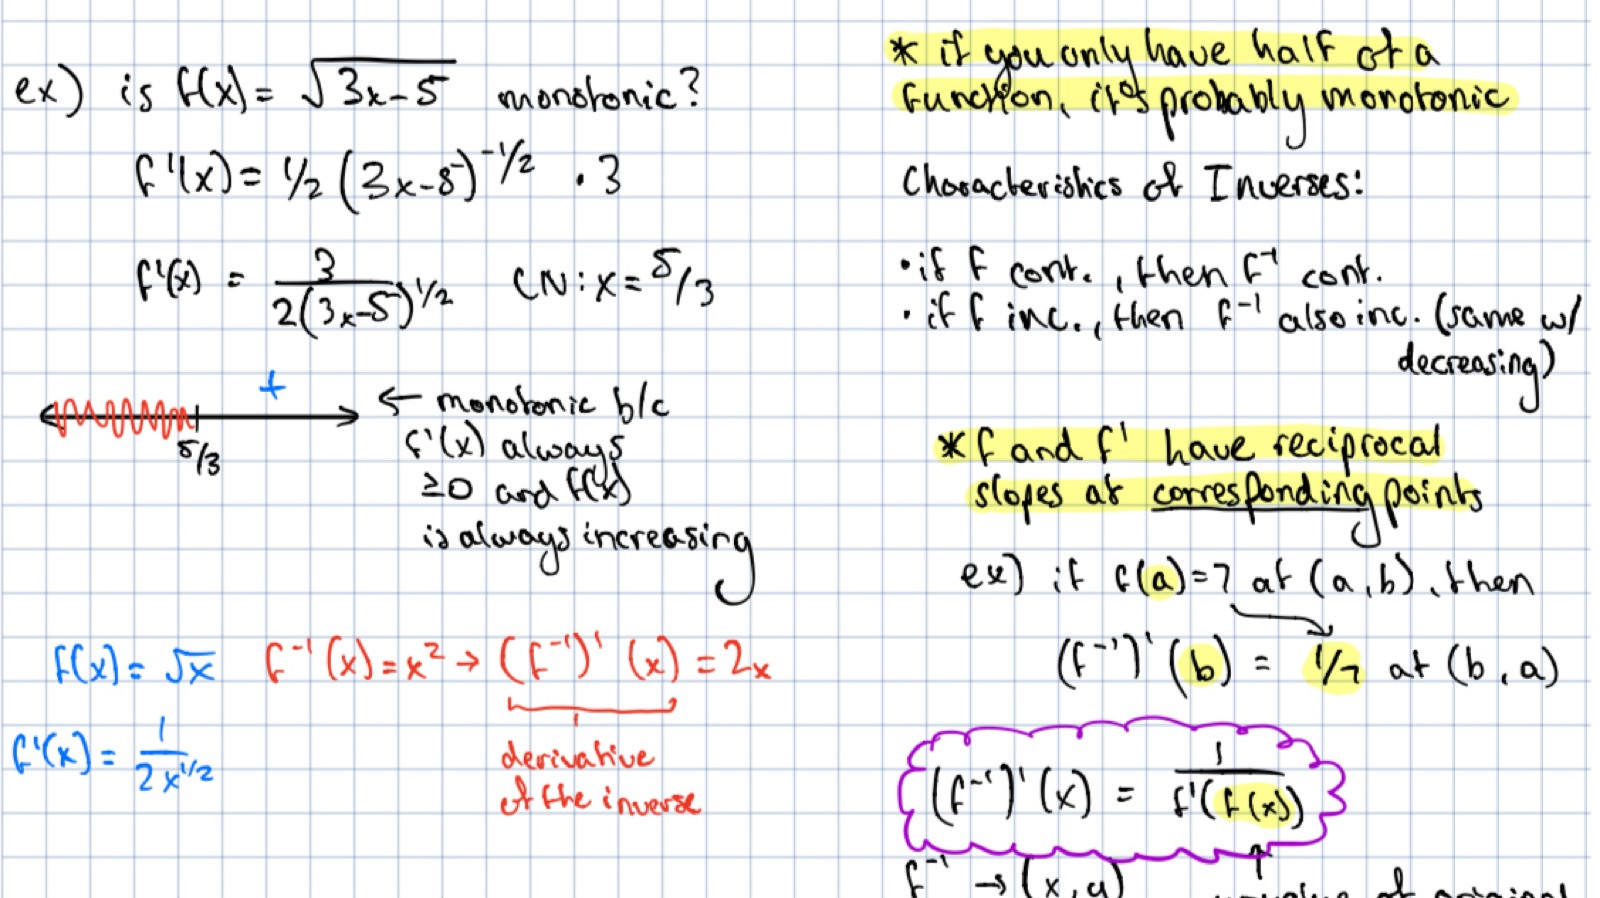 ex) is f(x) = √3x-5 monotonic?
f'(x) = 1/2 (3x-5)^-1/2 · 3
f'(x) = 3/2(3x-5)^1/2 CN: x = 5/3
+
5/3
← monotonic b/c
f'(x) always
≥0 and f(x)
is always increasing
f(x) = √x f^-1(x) = x^2 → (f^-1)'(x) = 2x
f'(x) = 1/2x^1/2
derivative
of the inverse
* if you only have half of a
function, it's probably monotonic
Characteristics of Inverses:
• if f cont., then f^-1 cont.
• if f inc., then f^-1 also inc. (same w/
decreasing)
* f and f' have reciprocal
slopes at corresponding points
ex) if f(a)=7 at (a,b), then
(f^-1)'(b) = 1/7 at (b,a)
(f^-1)'(x) = 1/f'(f(x))
f^-1 → (x,